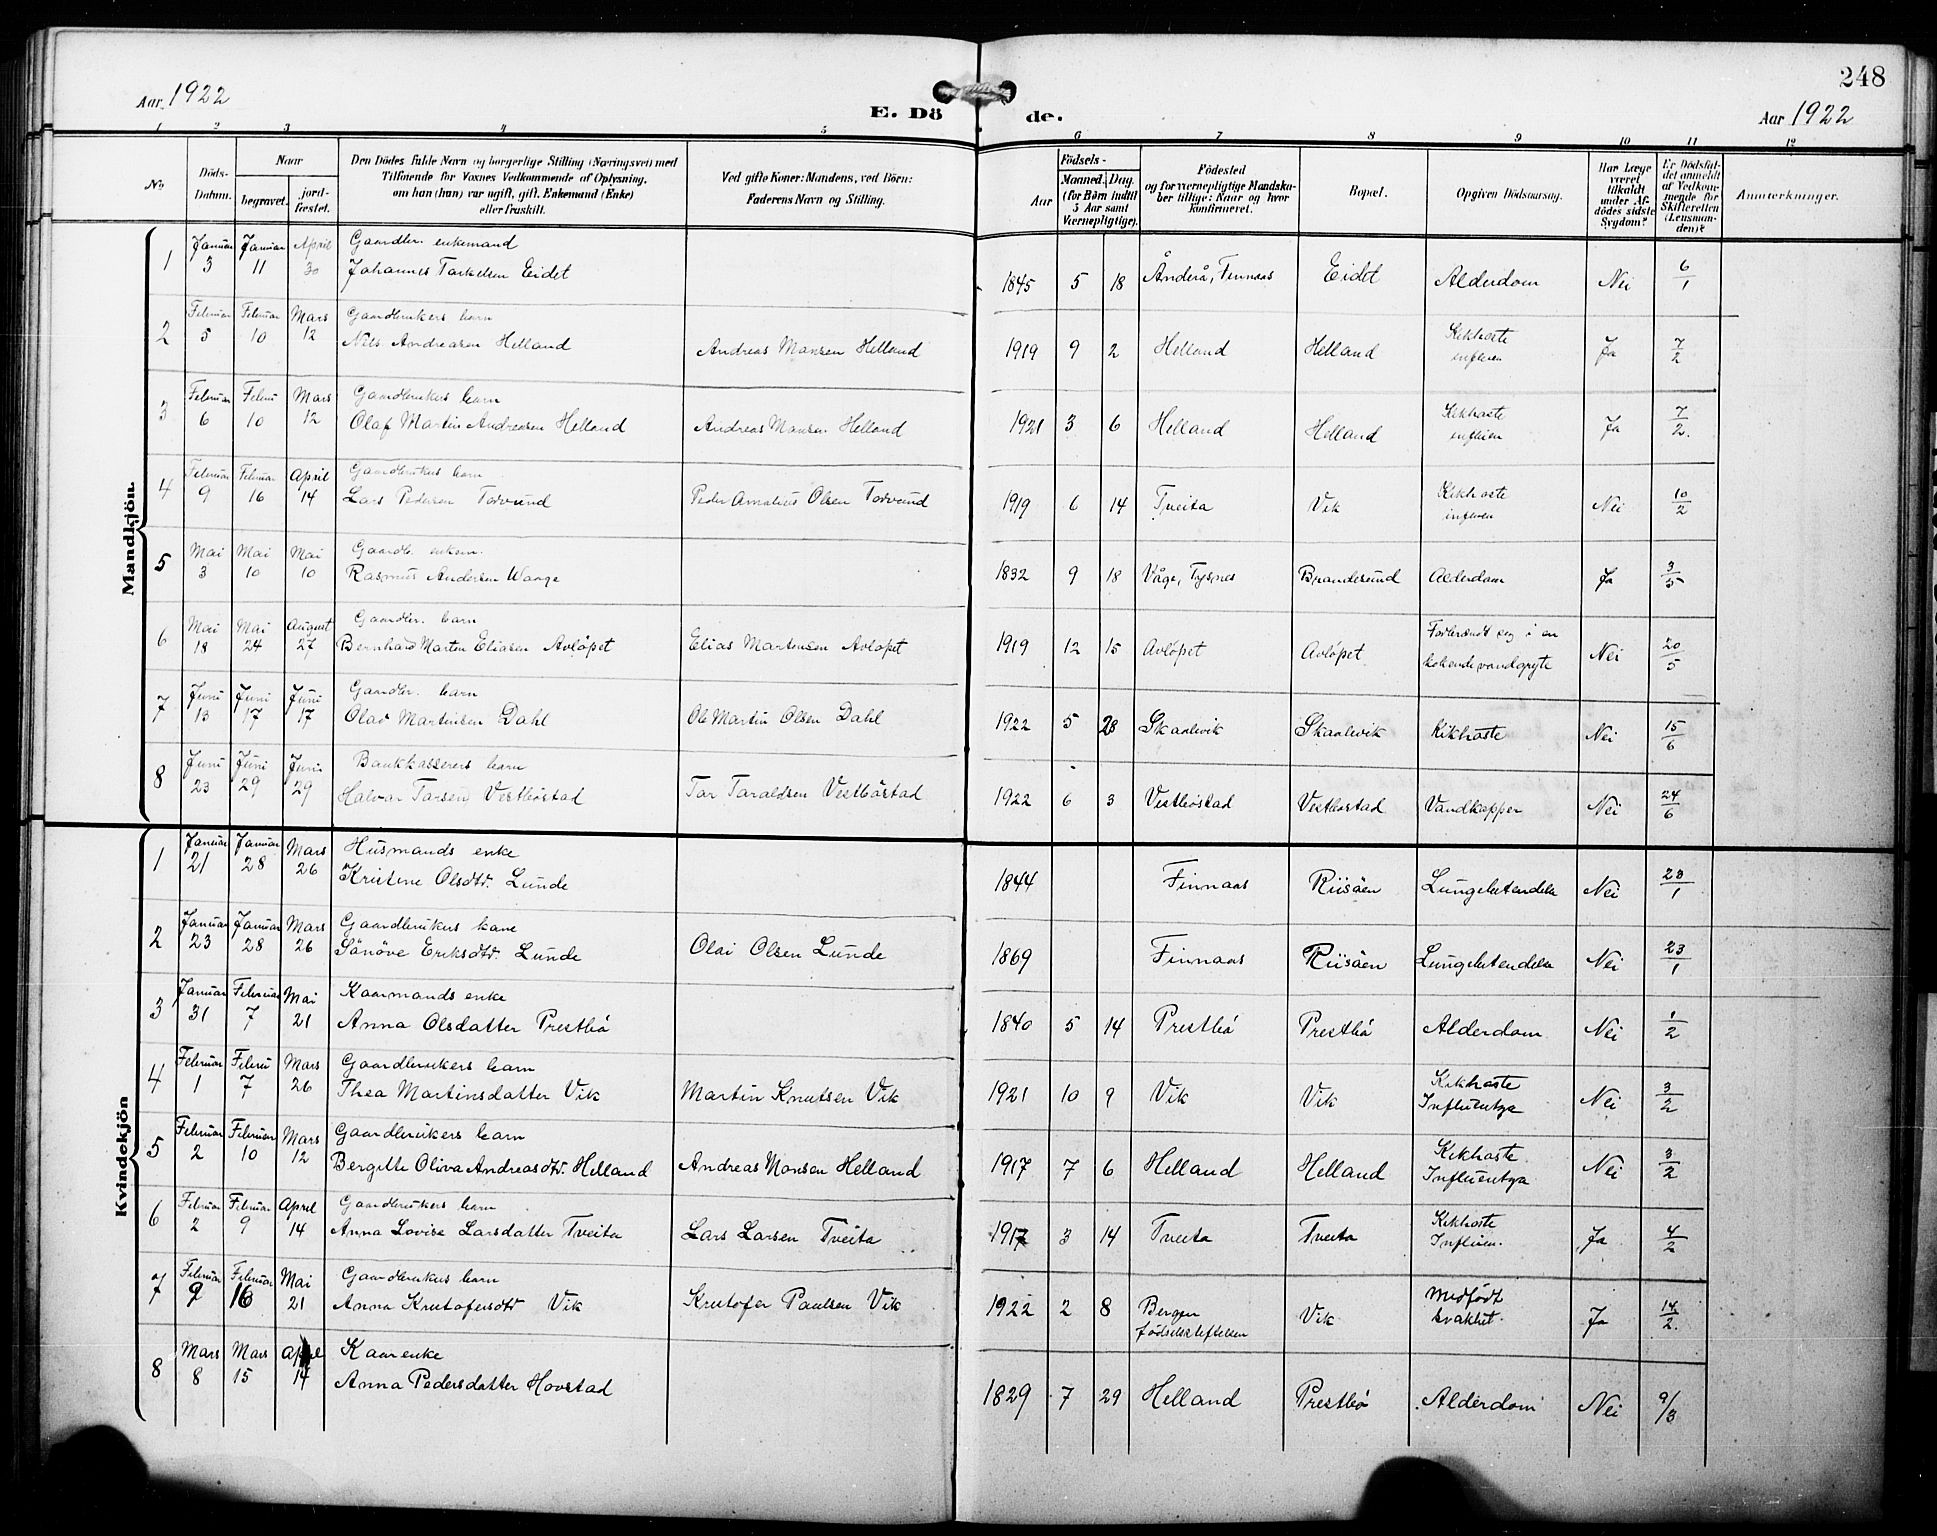 248
Aar 1922
E. Dö de.
Aar 1922
1 2 3 4 5 6 7 8 9 10 11 12
No. Döds-Datum. Naar begravet. jordfæstet. Den Dödes fulde Navn og borgerlige Stilling (Næringsvei) med Tilföiende for Voxnes Vedkommende af Oplysning, om han (hun) var ugift, gift, Enkemand (Enke) eller fraskilt. Ved gifte Koner: Mandens, ved Börn: Faderens Navn og Stilling. Födsels- Aar Maaned. Dag. (for Börn indtil 5 Aar samt Værnepligtige). Födested og for værnepligtige Mandskaber tillige: Naar og hvor konfirmeret. Bopæl. Opgiven Dödsaarsag. Har Læge været tilkaldt under Afdödes sidste Sygdom? Er Dödsfaldet anmeldt af Vedkommende for Skifteretten (Lensmanden)? Anmærkninger.
Mandkjön.
1 Januar 3 Januar 11 April 30 Gaardbr. enkemand
Johannes Torkelsen Eidet 1845 5 18 Ånderå, Finnaas Eidet Alderdom Nei 6/1
2 Februar 5 Februar 10 Mars 12 Gaardbrukers barn
Nils Andreasen Helland Andreas Monsen Helland 1919 9 2 Helland Helland Kikhoste influen Ja 7/2
3 Februar 6 Febru 10 Mars 12 Gaardbrukers barn
Olaf Martin Andreasen Helland Andreas Monsen Helland 1921 3 6 Helland Helland Kikhoste influen Ja 7/2.
4 Februar 9 Februar 16 April 14 Gaardbrukers barn
Lars Pedersen Torvund Peder Amalius Olsen Torvund 1919 6 14 Tveita Vik Kikhoste influen Nei 10/2
5 Mai 3 Mai 10 Mai 10 Gaardb. enkem.
Rasmus Andersen Waage 1832 9 18 Våge, Tysnes Brandesund Alderdom Ja 3/5
6 Mai 18 Mai 24 August 27 Gaardbr. barn
Bernhard Marten Eliasen Avlöpet Elias Martensen Avlöpet 1919 12 15 Avlöpet Avlöpet Forbrændt seg i en kokende vandgryte Nei 20/5
7 Juni 13 Juni 17 Juni 17 Gaardbr. barn
Olav Martinsen Dahl Ole Martin Olsen Dahl 1922 5 28 Skaalevik Skaalevik Kikhoste Nei 15/6
8 Juni 23 Juni 29 Juni 29 Bankkasserers barn
Halvar Torsen Vestböstad Tor Taraldsen Vestböstad 1922 6 3 Vestböstad Vestbostad Vandkopper Nei 24/6
Kvindekjön
1 Januar 21 Januar 28 Mars 26 Husmands enke
Kristene Olsdtr. Lunde 1844 Finnaas Riisöen Lungebetendelse Nei 23/1
2 Januar 23 Januar 28 Mars 26 Gaardbrukers kone
Sönöve Eriksdtr. Lunde Olai Olsen Lunde 1869 Finnaas Riisöen Lungebetendelse Nei 23/1
3 Januar 31 Februar 7 Mai 21 Kaarmands enke
Anna Olsdatter Prestbö 1840 5 14 Prestbö Prestbö Alderdom Nei 1/2
4 Februar 1 Febru 7 Mars 26 Gaardbrukers barn
Thea Martinsdatter Vik Martin Knutsen Vik 1921 10 9 Vik Vik Kikhoste Influentza Nei 3/2
5 Februar 2 Februar 10 Mars 12 Gaardbrukers barn
Bergitte Oliva Andreasdtr. Helland Andreas Monsen Helland 1917 7 6 Helland Helland Kikhoste Influentza Nei 3/2
6 Februar 2 Februar 9 April 14 Gaardbrukers barn
Anna Lovise Larsdatter Tveita Lars Larsen Tveita 1917 3 14 Tveita Tveita Kikhoste Influen. Ja 4/2
7 Februar 9 Februar 16 Mai 21 Gaardbrukers barn
Anna Kristofersdtr Vik Kristofer Paulsen Vik 1922 2 8 Bergen födselsstiftelsen Vik Medfödt svakhet. Ja 14/2.
8 Mars 8 Mars 15 April 14 Kaarenke
Anna Pedersdatter Hovstad 1829 7 29 Helland Prestbö Alderdom Nei 9/3